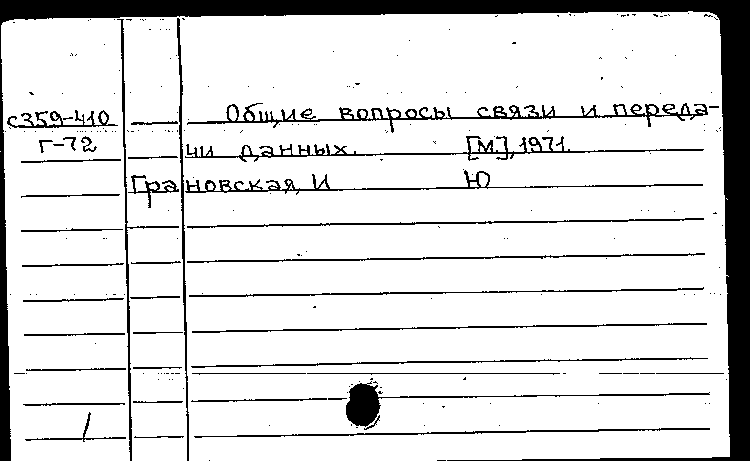 с359-410 Общие вопросы связи и переда-
Г-72 чи данных. [М.], 1971.
Грановская, И Ю